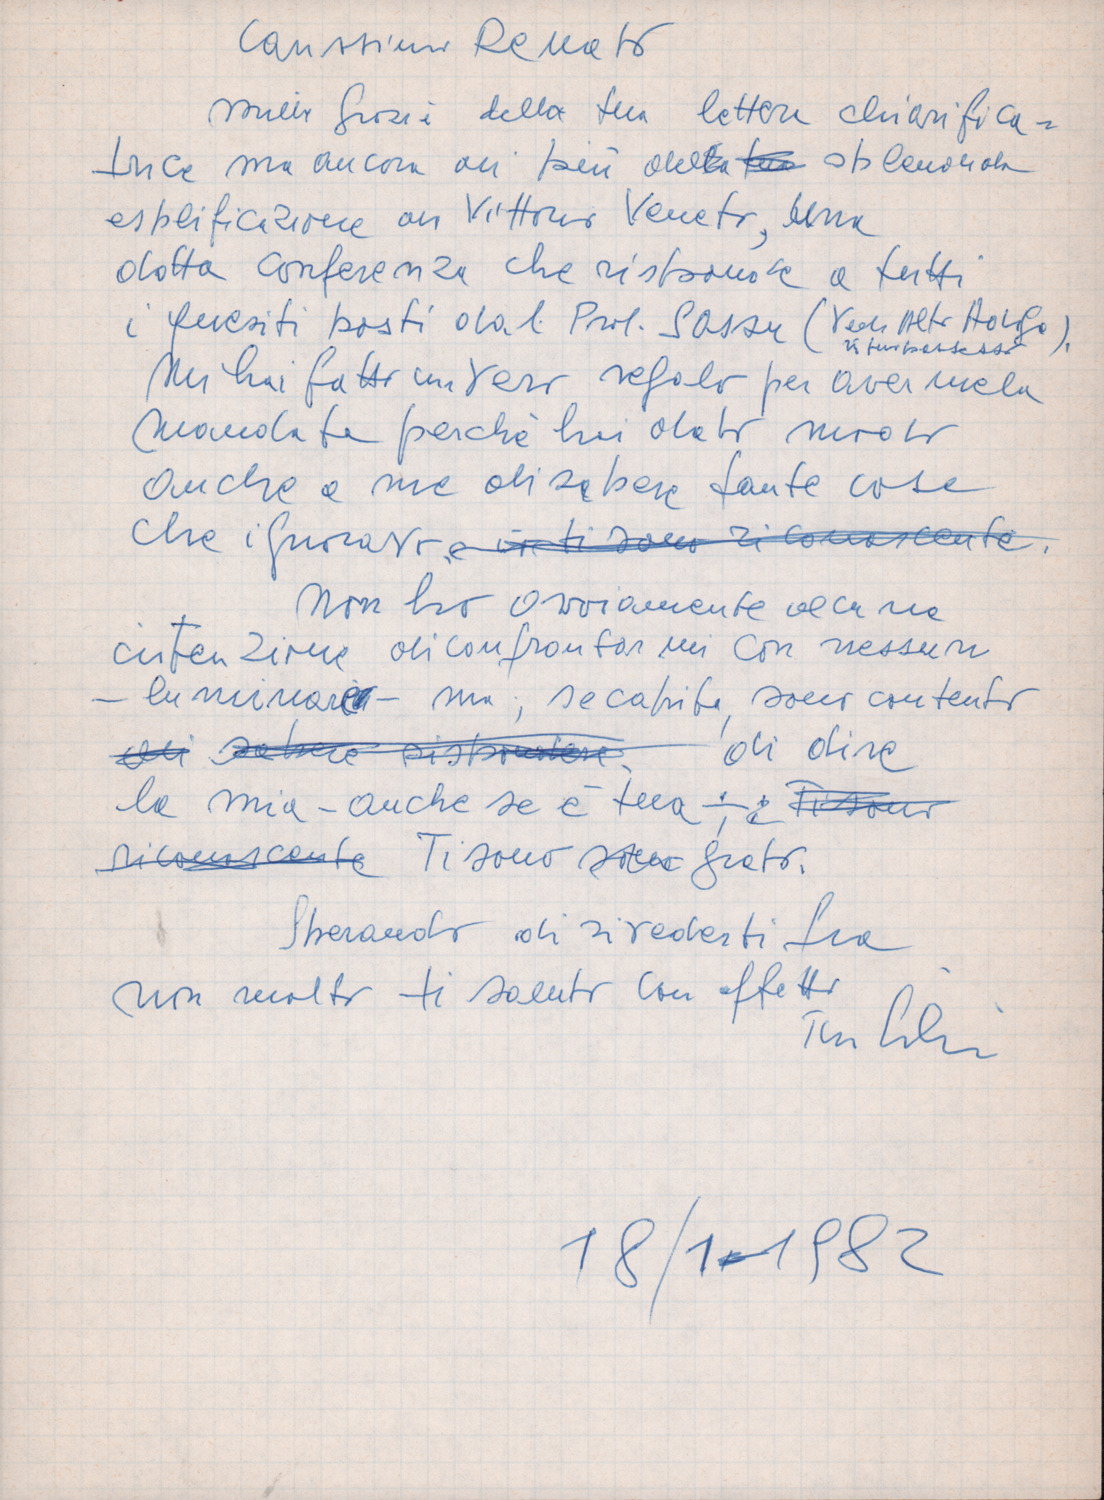 Carissimo Renato
mille grazie della tua lettera chiarifica=
trice ma ancora di più della tua splendida
esplificazione di Vittorio Veneto, una
dotta conferenza che risponde a tutti
i quesiti posti dal Prof. Sassu (Vedi Alto Adige).
Mi hai fatto un vero regalo per avermela
mandata perchè hai dato modo
anche a me di sapere tante cose
che ignoravo, e ti sono riconoscente.
Non ho ovviamente alcuna
intenzione di confrontarmi con nessun
- luminare - ma, se capita, sono contento
di sapere rispondere. di dire
la mia - anche se è tua -; e Ti sono
riconoscente Ti sono sono grato.
Sperando di rivederti fra
non molto ti saluto con affetto
Tuo
18/1-1982